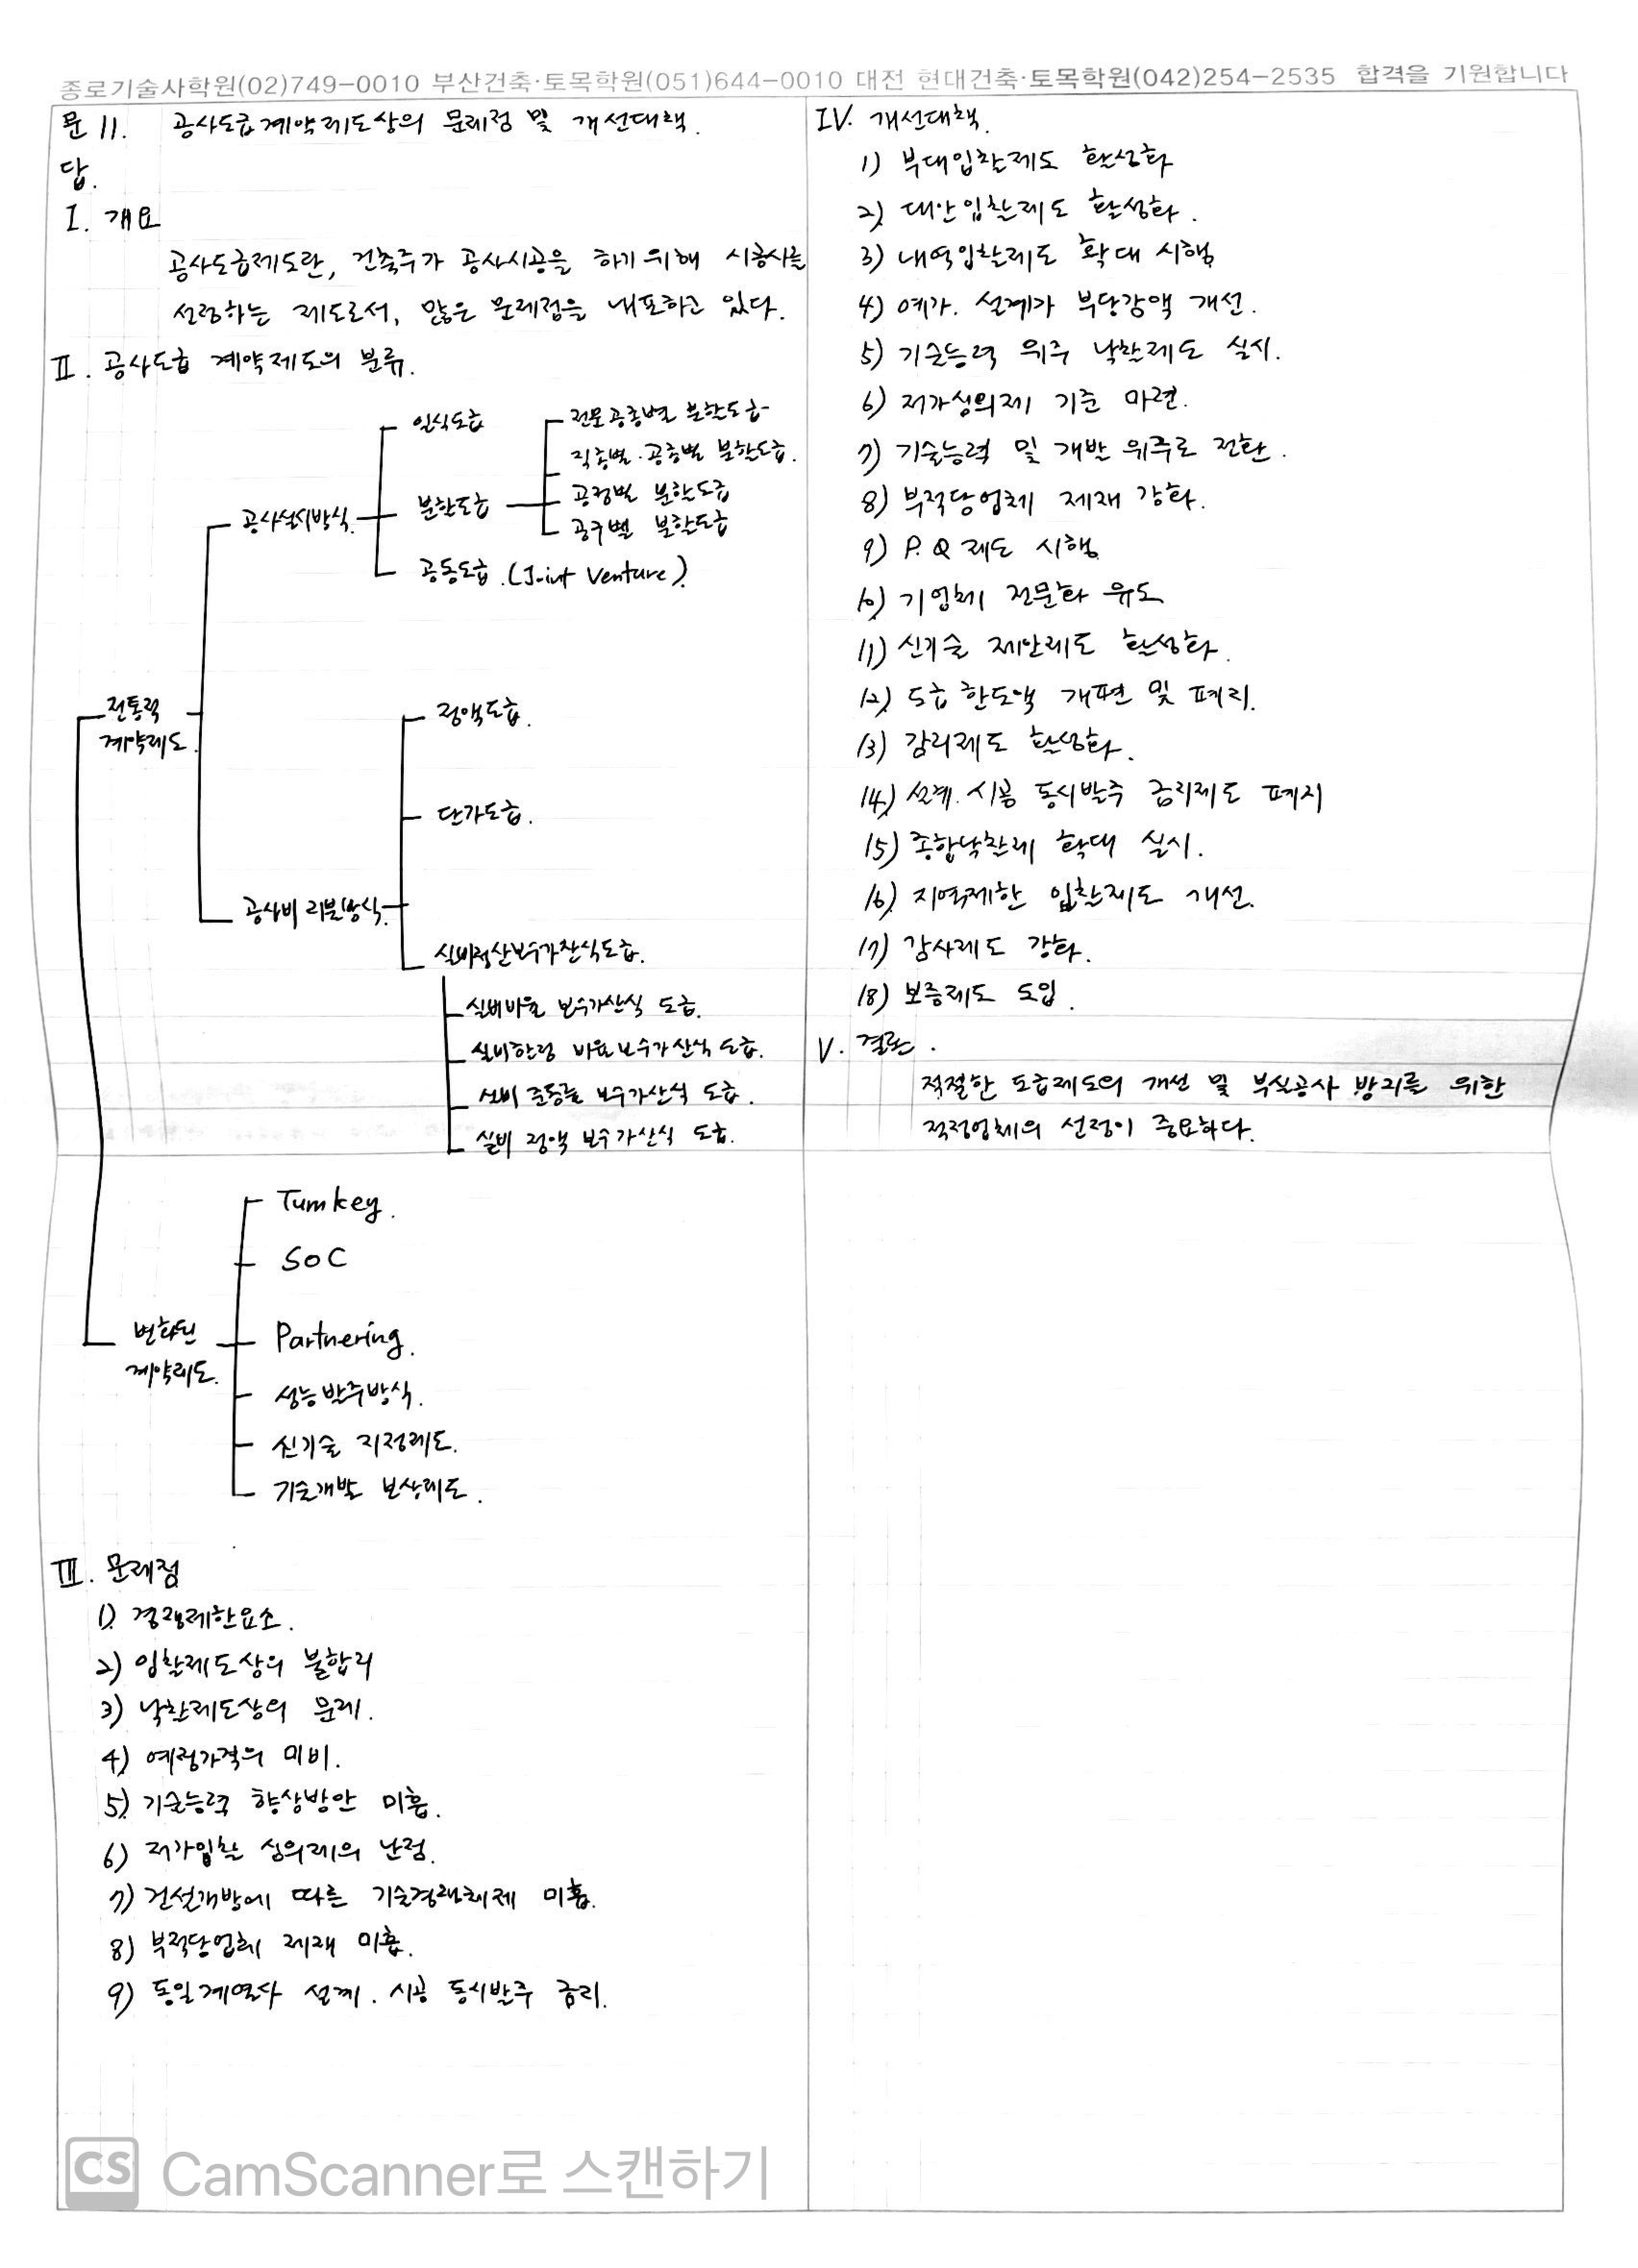 종로기술사학원(02)749-0010 부산건축·토목학원(051)644-0010 대전 현대건축·토목학원(042)254-2535 합격을 기원합니다
문 11. 공사도급계약제도상의 문제점 및 개선대책.
답.
I. 개요
공사도급제도란, 건축주가 공사시공을 하기 위해 시공사를
선정하는 제도로서, 많은 문제점을 내포하고 있다.
II. 공사도급 계약제도의 분류.
전통적
계약제도.
공사실시방식.
일식도급
분할도급
전문공종별 분할도급
직종별·공종별 분할도급.
공정별 분할도급
공구별 분할도급
공동도급.(Joint Venture).
공사비 지불방식.
정액도급.
단가도급.
실비정산보수가산식도급.
실비비율 보수가산식 도급.
실비한정 비율보수가산식 도급.
실비 준동률 보수가산식 도급.
실비 정액 보수가산식 도급.
변화된
계약제도.
Turnkey.
SOC
Partnering.
성능발주방식.
신기술 지정제도.
기술개발 보상제도.
III. 문제점
1) 경쟁제한요소.
2) 입찰제도상의 불합리
3) 낙찰제도상의 문제.
4) 예정가격의 미비.
5) 기술능력 향상방안 미흡.
6) 저가입찰 심의제의 난점.
7) 건설개방에 따른 기술경쟁체제 미흡.
8) 부적당업체 제재 미흡.
9) 동일계열사 설계.시공 동시발주 금지.
IV. 개선대책.
1) 부대입찰제도 활성화
2) 대안입찰제도 활성화.
3) 내역입찰제도 확대 시행
4) 예가. 설계가 부당감액 개선.
5) 기술능력 위주 낙찰제도 실시.
6) 저가심의제 기준 마련.
7) 기술능력 및 개발 위주로 전환.
8) 부적당업체 제재 강화.
9) P.Q 제도 시행
10) 기업체 전문화 유도
11) 신기술 제안제도 활성화.
12) 도급 한도액 개편 및 폐지.
13) 감리제도 활성화.
14) 설계.시공 동시발주 금지제도 폐지
15) 종합낙찰제 확대 실시.
16) 지역제한 입찰제도 개선.
17) 감사제도 강화.
18) 보증제도 도입.
V. 결론.
적절한 도급제도의 개선 및 부실공사 방지를 위한
적정업체의 선정이 중요하다.
CS CamScanner로 스캔하기